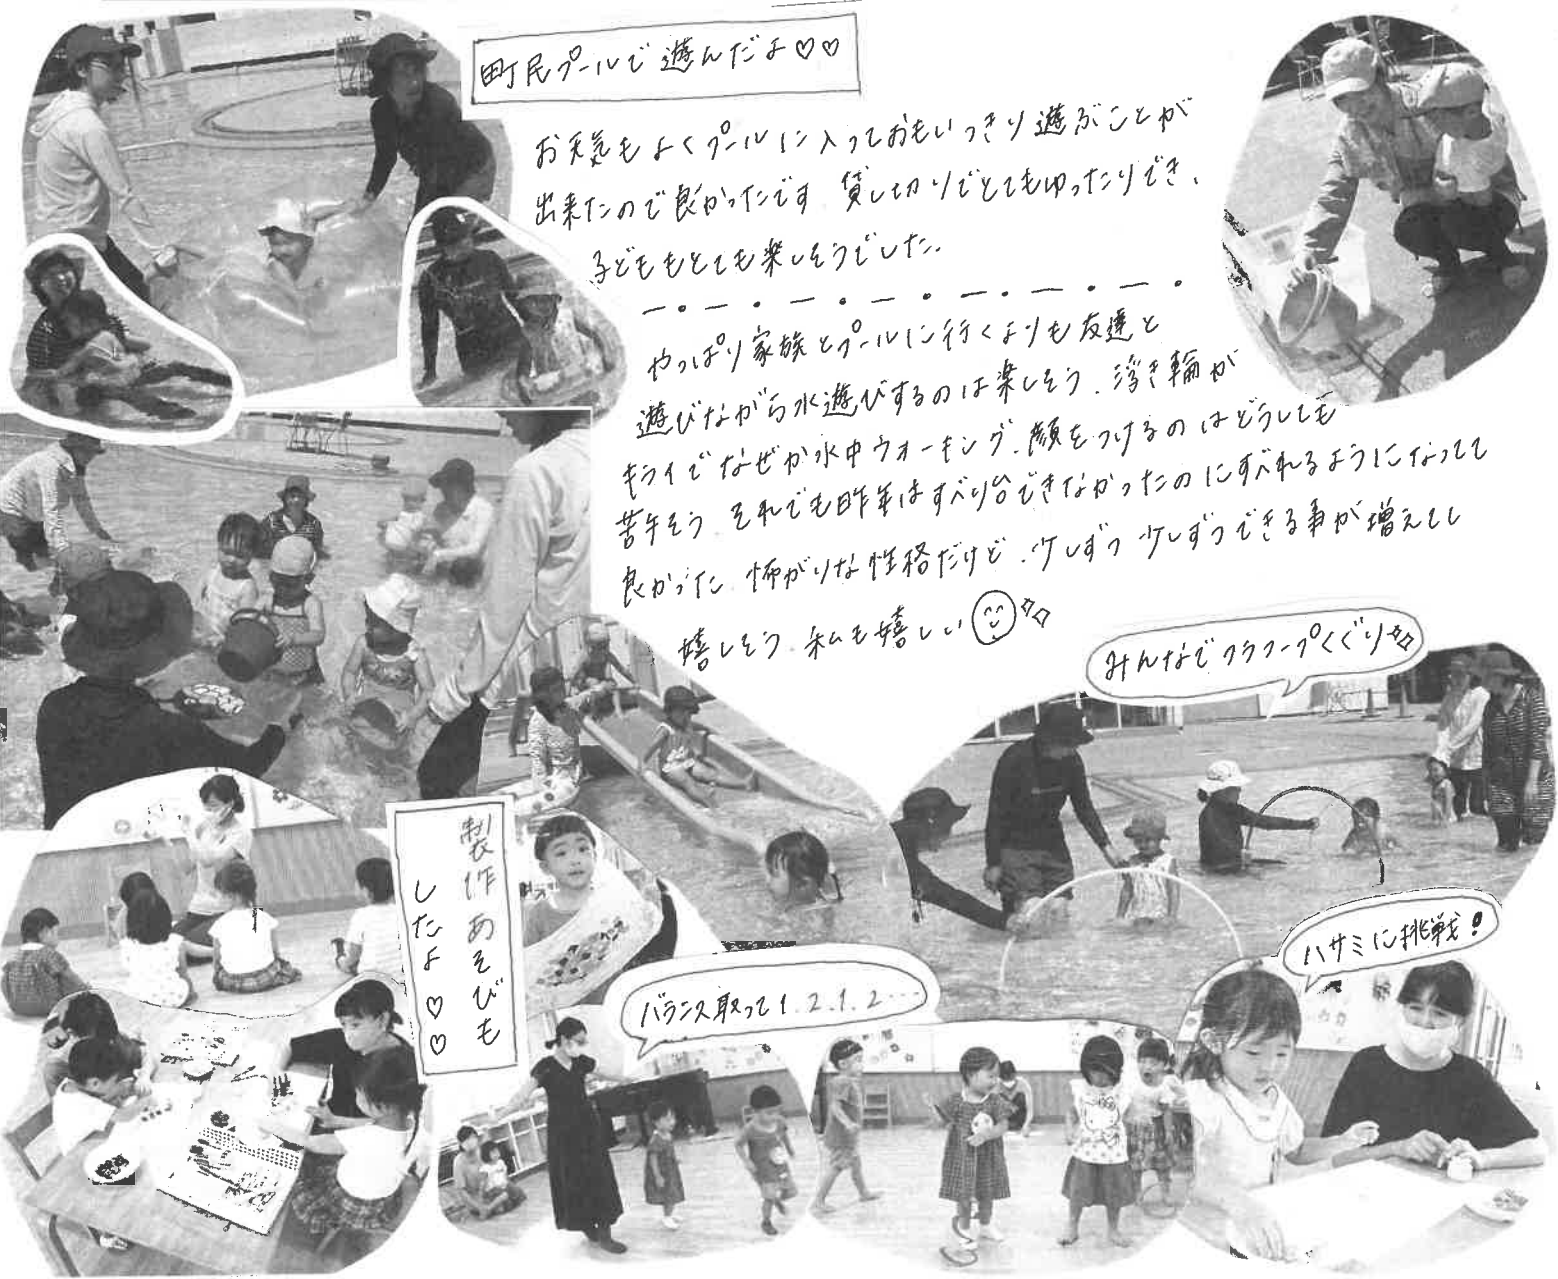 町民プールで遊んだよ♡♡
お天気もよくプールに入っておもいっきり遊ぶことが
出来たので良かったです。貸し切りでとてもゆったりでき、
子どももとても楽しそうでした。
やっぱり家族とプールに行くよりも友達と
遊びながら水遊びするのは楽しそう。浮き輪が
キライでなぜか水中ウォーキング。顔をつけるのはどうしても
苦手そう。それでも昨年はすべり台できなかったのにすべれるようになってて
良かった。怖がりな性格だけど、少しずつ少しずつできる事が増えてし
嬉しそう。私も嬉しい
みんなでフラフープくぐり
製作あそびも
したよ♡♡♡
ハサミに挑戦!
バランス取って1.2.1.2…